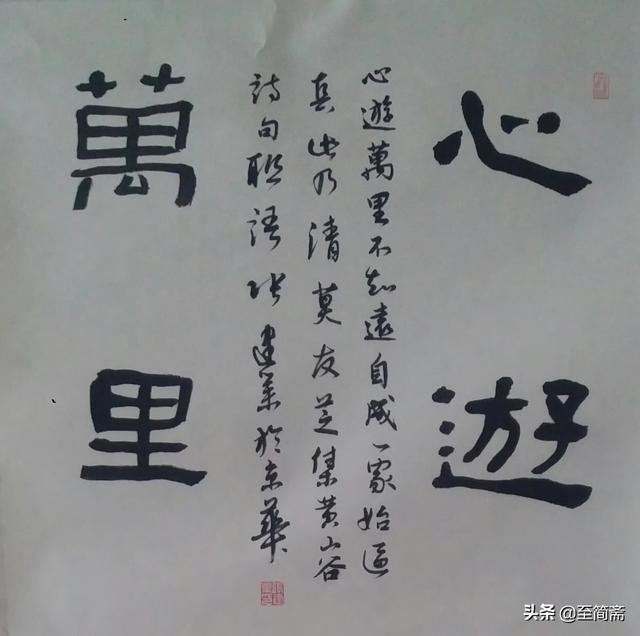 心遊
心遊萬里不知遠自成一家始逼
真此乃清莫友芝集黄山谷
詩句聯語张建業於京華
萬里
头条 @至简斋